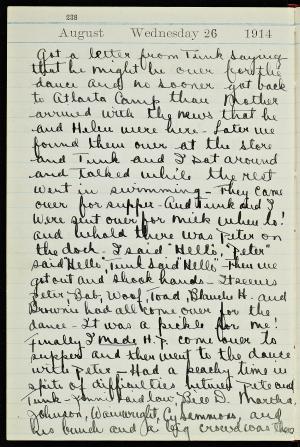 238
August Wednesday 26 1914
Got a letter from Tunk saying
that he might be over for the
dance and no sooner got back
to Atlanta Camp than Mother
arrived with the news that he
and Helen were here - Later we
found them over at the store
and Tunk and I sat around
and talked while the rest
went in swimming - They came
over for supper - And Tunk and I
were sent over for milk when lo!
and behold there was Peter on
the dock - I said "Hello", "Peter"
said "Hello", Tunk said "Hello" - Then we
got out and shook hands - It seems
Peter, Bab, Woof, Toad, Blanche H. and
Brownie had all come over for the
dance - It was a pickle for me!
Finally I made H.P. come over to
supper and then went to the dance
with Peter - Had a peachy time in
spite of difficulties between Pete and
Tunk - Laidlaw, Bill D. Martha,
Johnson, Wainwright, Cy Simmons, and
his bunch and a big crowd was there